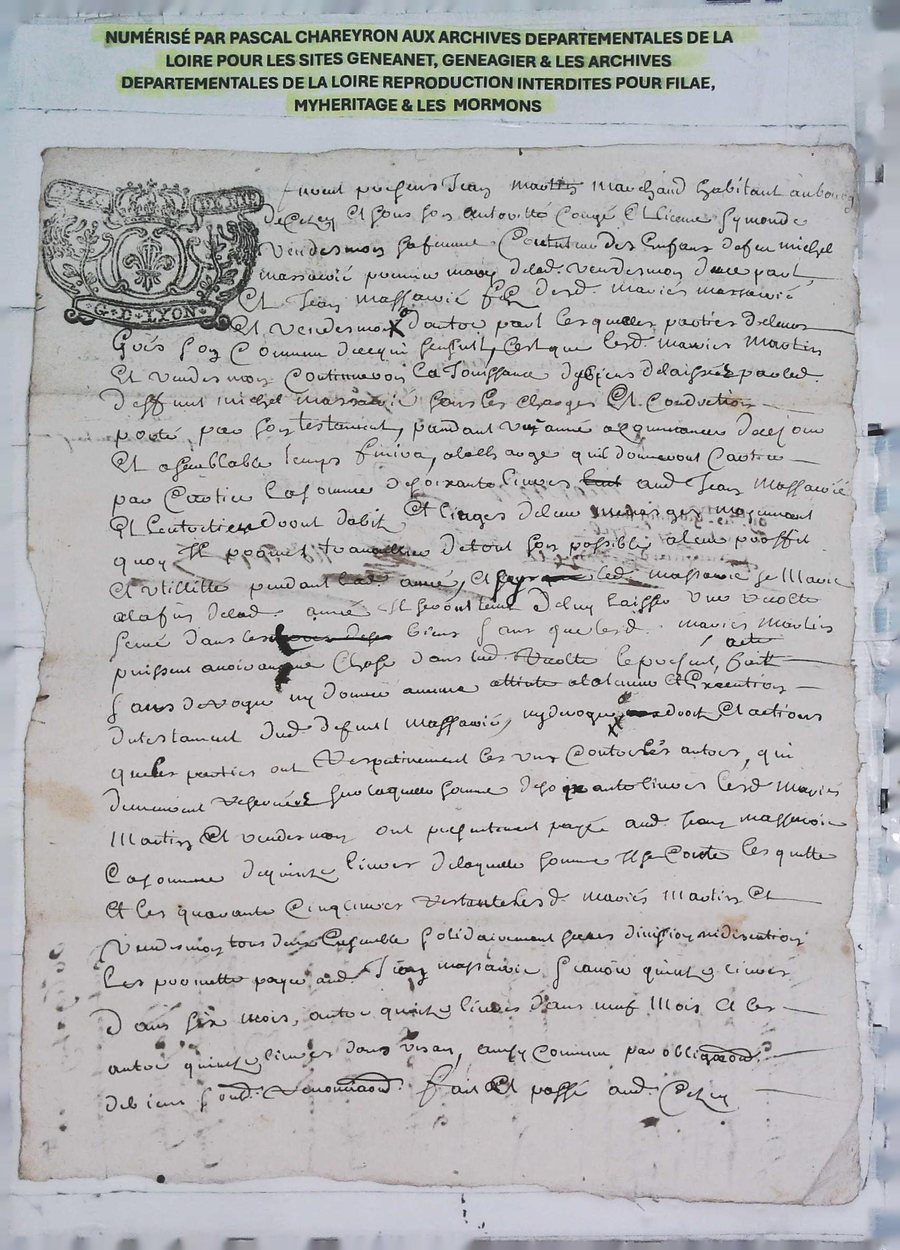 NUMÉRISÉ PAR PASCAL CHAREYRON AUX ARCHIVES DEPARTEMENTALES DE LA
LOIRE POUR LES SITES GENEANET, GENEAGIER & LES ARCHIVES
DEPARTEMENTALES DE LA LOIRE REPRODUCTION INTERDITES POUR FILAE,
MYHERITAGE & LES MORMONS
G·D·LYON
furent presens Jean martin marchand habitant au bourg
de et sous son autorité congé et licence symonde
vendesmon sa femme des enfans de feu michel
massacrié premier mary de lad. vendesmon d'une part
Et Jean massacrié filz desd. mariés massacrié
Et vendesmon d'autre part lesquelles parties de leurs
grés son commun que lesd. mariés martin
Et vendesmon continueront la Jouissance des biens delaissés par led.
deffunt michel massacrié sous les charges Et conditions
porté par son testament, pendant une année a commancer de ce jour
Et a semblable temps finira, a la charge qu'ils donneront
par la somme de soixante livres aud Jean massacrié
Et d'abit Et linges moyennant
quoy Il promet travallier de tout son possible a leur proffit
Et utillitté pendant lad année, Et led massacrié se marie
a la fin delad. année Il seront tenu de luy laisser une recolte
semé dans les biens sans que lesd. mariés martin
puissent avoir aucune chose dans lad. recolte le present acte fait
sans deroger ny donner aucune attinte Et Execution
du testament dud deffunt massacrié, ny deroger droits Et actions
que les parties ont respectivement les uns contre les autres, qui
demeurent reservées sur laquelle somme de soixante livres lesd. mariés
martin Et vendesmon ont presentement payé aud. Jean massacrié
la somme de quinze livres de laquelle somme Il se contente les quitte
Et les quarante cinq livres restante lesd. mariés martin Et
vendesmon tous deux ensemble solidairement sans division ni discution
les promette payer aud. Jean massacrié sçavoir quinze livres
dans six mois, autre quinze livres dans neuf mois Et les
autre quinze livres dans un an, ainsy convenu par obligaõn
de biens fait Et passé aud.